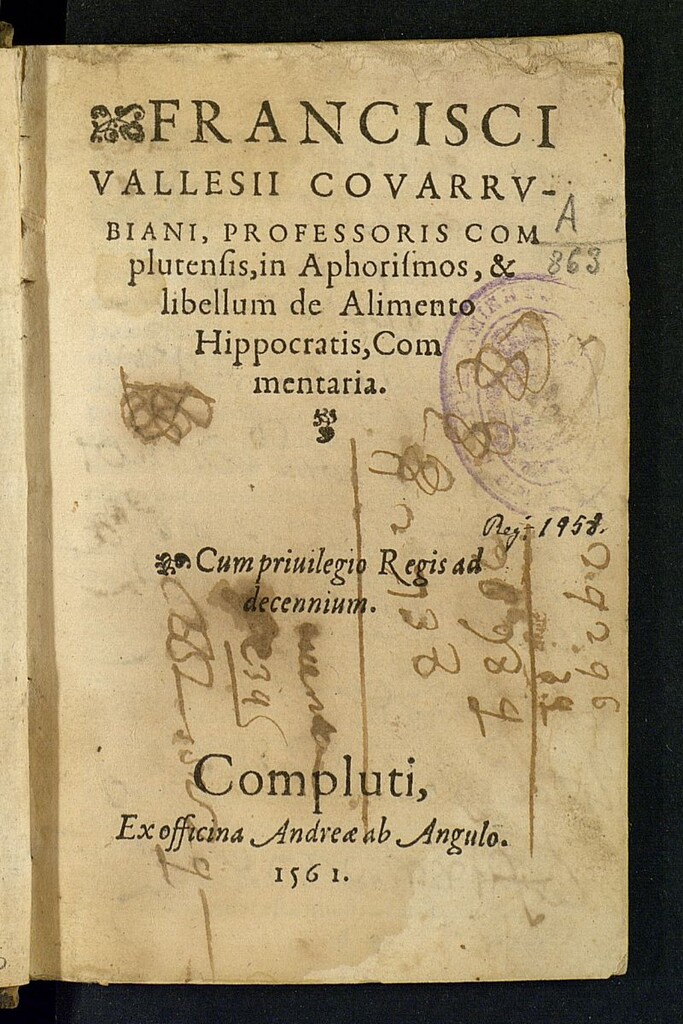 FRANCISCI
VALLESII COVARRV-
BIANI, PROFESSORIS COM
plutenſis, in Aphoriſmos, &
libellum de Alimento
Hippocratis, Com
mentaria.
A
863
Reg. 1958.
Cum priuilegio Regis ad
decennium.
Compluti,
Ex officina Andreæ ab Angulo.
1561.